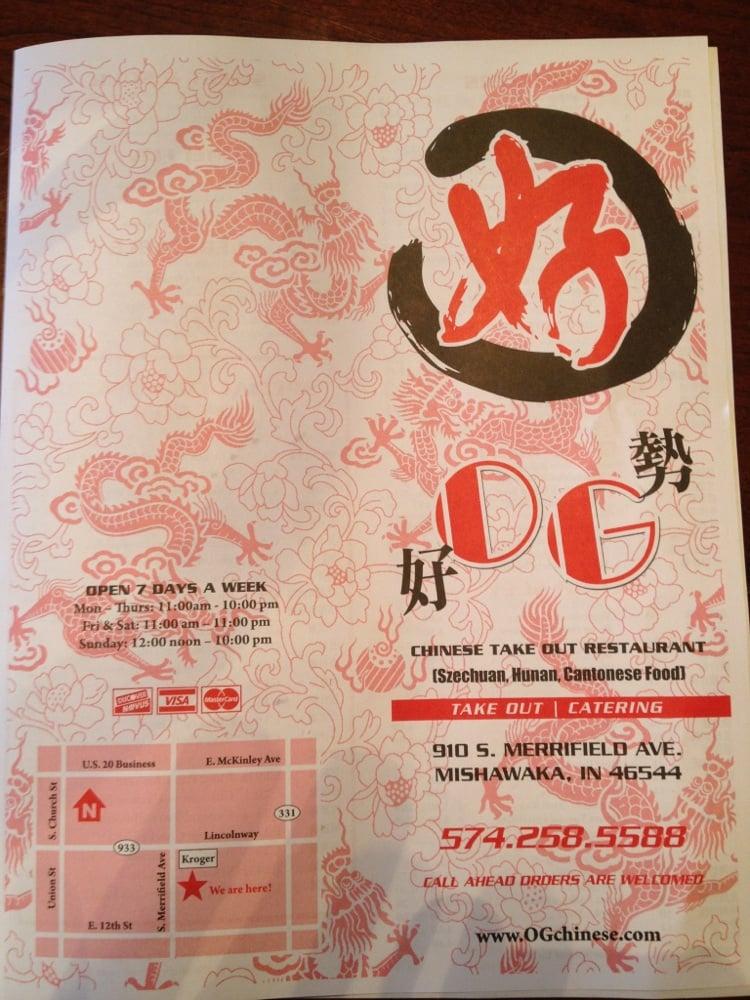 好
勢
OG
好
CHINESE TAKE OUT RESTAURANT
(Szechuan, Hunan, Cantonese Food)
TAKE OUT | CATERING
910 S. MERRIFIELD AVE.
MISHAWAKA, IN 46544
574.258.5588
CALL AHEAD ORDERS ARE WELCOMED
www.OGchinese.com
OPEN 7 DAYS A WEEK
Mon - Thurs: 11:00am - 10:00 pm
Fri & Sat: 11:00 am - 11:00 pm
Sunday: 12:00 noon - 10:00 pm
DISCOVER NOVUS
VISA
MasterCard
U.S. 20 Business
E. McKinley Ave
S. Church St
N
331
Lincolnway
933
Kroger
Union St
S. Merrifield Ave
We are here!
E. 12th St